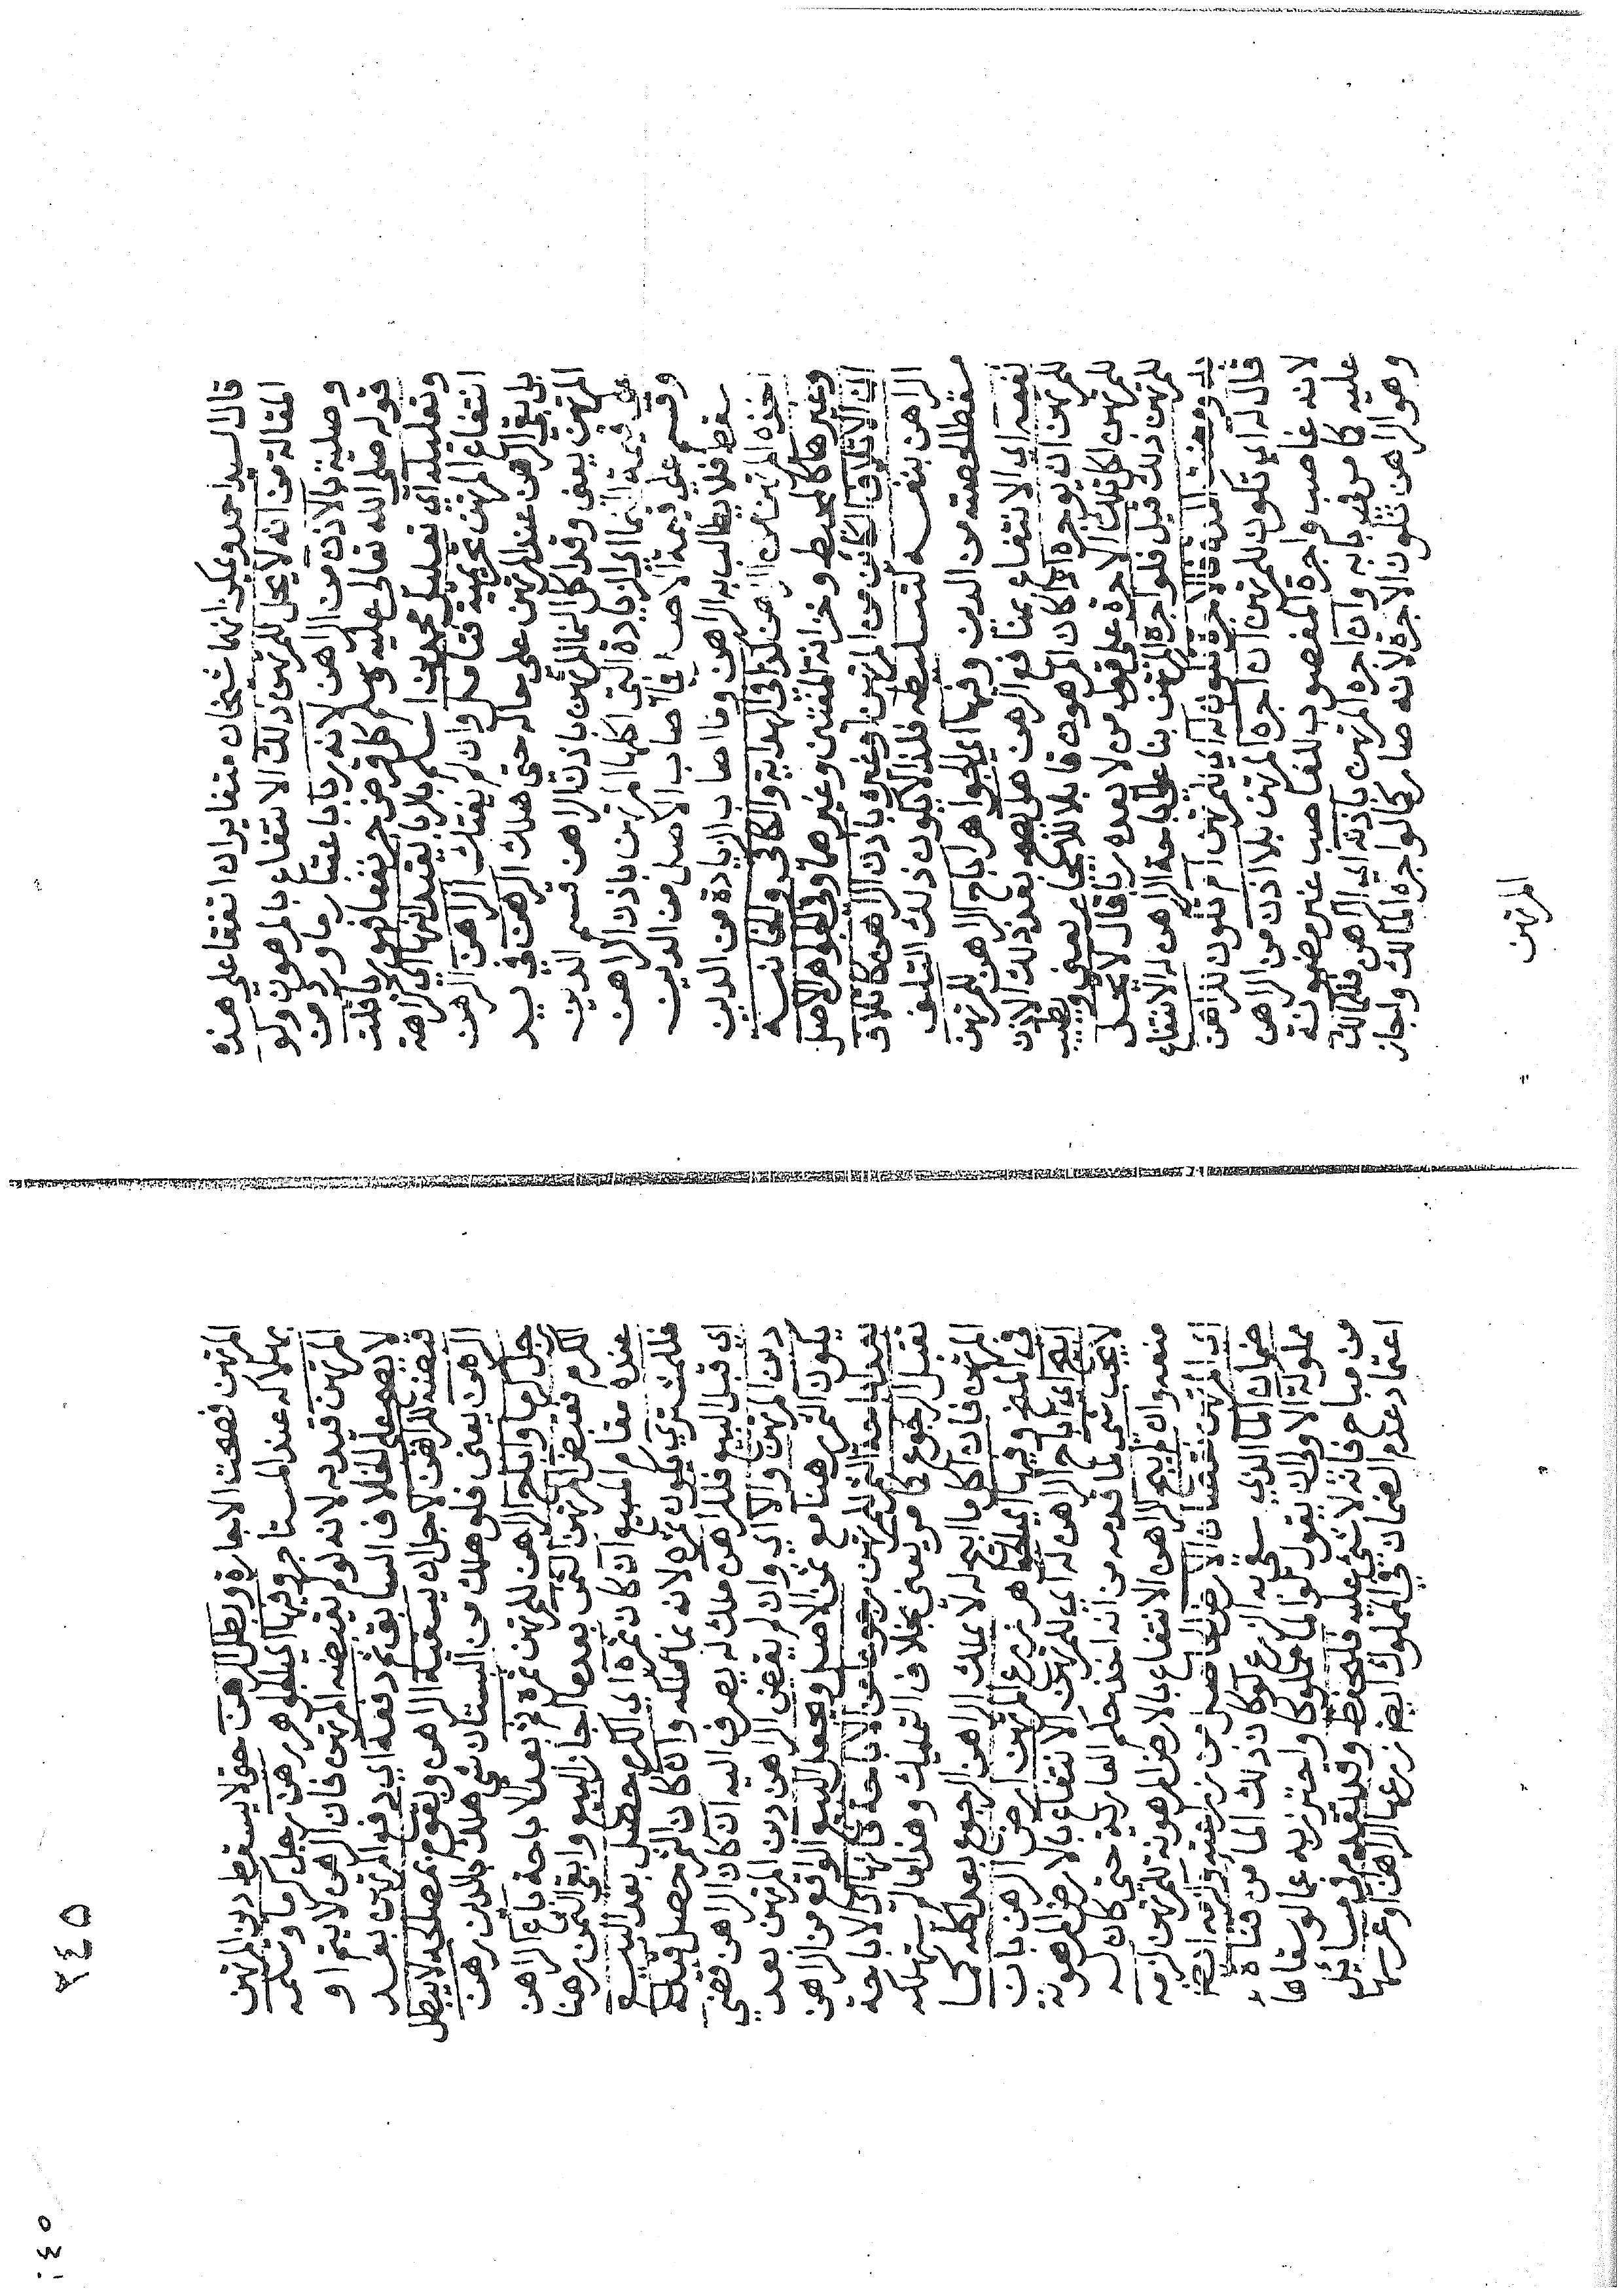 قال السيد احمد ويمكن انهما شيخان متغايران اتفقا على هذه
المقالة من انه لا يحل للمرتهن ذلك الانتفاع بالمرهون ولو
وصلية بالاذن من الراهن لانه ربا باعتبار ما ورد من
قوله صلى الله تعالى عليه وسلم كل قرض جر نفعا فهو ربا قلت
وتعليله اي تعليل محمد بن اسلم بالربا يفيد انها اي كراهة
انتفاع المرتهن تحريمية فتامل وان لم يفتك الراهن الرهن
بل بقى الرهن عند المرتهن على حاله حتى هلك الرهن في يد
المرتهن يعنى وقد اكل النماء المرتهن باذن الراهن قسم الدين
على قيمة النما اي الزيادة التي اكلها المرتهن باذن الراهن
وقسم على قيمة الاصل ايضا فما اصاب الاصل من الدين
سقط فلا يطالب به الراهن وما اصاب الزيادة من الدين
اخذه المرتهن من الراهن كذا في الهداية والكافى والخانية
وغيرها كالمحيط وخزانة المفتين وغيرهما وفي الجواهر الاصل
ان الاتلاف الكائن من المرتهن او غيره باذن الراهن كاتلاف
الراهن بنفسه لتسليطه فلذا لا يكون ذلك التلف
مسقطا لحصته من الدين وفيها اي الجواهر اباح الراهن للمرتهن
نفعه اي الانتفاع بمنافع الرهن هل يصح بعد ذلك الاذن
للمرتهن ان يوجره ان كان المرهون قابلا للايجار يعنى ويطيب
للمرتهن اكل تلك الاجرة على قول من لا يعده ربا قال لا يصح
للمرتهن ذلك قيل فلو اجره المرتهن بناء على اباحة الراهن له الانتفاع
به ومضت المدة فالاجرة تكون له اي للمرتهن ام تكون للراهن
قال له اي تكون للمرتهن ان اجره المرتهن بلا اذن من الراهن
لانه غاصب واجرة المغصوب للغاصب غير مضمونة
عليه كما مر في بابه وان اجره المرتهن باذنه اي الراهن فللمالك
وهو الراهن تكون الاجرة لانه صار كما لو اجره المالك واجاز
المرتهن
٢٤٥
المرتهن فصحت الاجارة وبطل الرهن حتى لا يسقط دين المرتهن
بهلاكه عند المستاجر وفيها اي الجواهر رهن رجل كرما وتسلمه
المرتهن قيد به لانه لو لم يقبضه المرتهن فان الرهن لا يتم او
لا يصح على الخلاف السابق ثم دفعه اي دفع المرتهن بعد
قبضه للراهن لاجل ان يسقيه الراهن ويقوم بمصالحه لا يبطل
الرهن يعنى فلو هلك من البستان شي هلك بالدين رهن
رجل كرما واباح الراهن للمرتهن ثمره ثم بعد الاباحة باع الراهن
الكرم فقبض المرتهن الثمن بعدما اجاز البيع وابقى الثمن رهنا
عنده مقام المبيع ان كان ثمره اي الكرم حصل بعد البيع
فللمشتري يكون ثمره لانه نما ملكه وان كان الثمر حصل قبله
اي قبل البيع فللراهن ملك له يصرف اليه ان كان الراهن قضى
دين المرتهن والا اي وان لم يقض الراهن دين المرتهن بعد
يكون الثمر رهنا مع ثمن الاصل ويجعل البيع الواقع من الراهن
بعد اباحة الثمر للمرتهن رجوعا عن الاباحة فانها اي الاباحة
تقبل الرجوع كما مر يعنى بخلاف التمليك وهذا ما لم يستهلكه
المرتهن فان اكل ما ابيح له لا يملك الراهن الرجوع بعد اكله كما
في المنح وفيها اي الجواهر زرع المرتهن ارض الرهن بان
ابيح اي اباح الراهن له اي للمرتهن الانتفاع بالارض المرهونة
لا يجب شي لما قدمه من انه اخذ حكم العارية حتى كان له
منعه وان لم يبح الراهن الانتفاع بالارض المرهونة للمرتهن لزمه
اي المرتهن نقصان الارض الحاصل من زراعته
ضمان الما الذي سقى به الزرع لو كان ذلك الما من قناة
مملوكة الاولى ان يقول لو الما مملوكا واحترز به عما لو سقاها
من مباح فانه لا شي عليه فليحفظ وقد تقدم في مسائل
اعتماد عدم الضمان في المملوك ايضا زرعها الراهن او غرسها